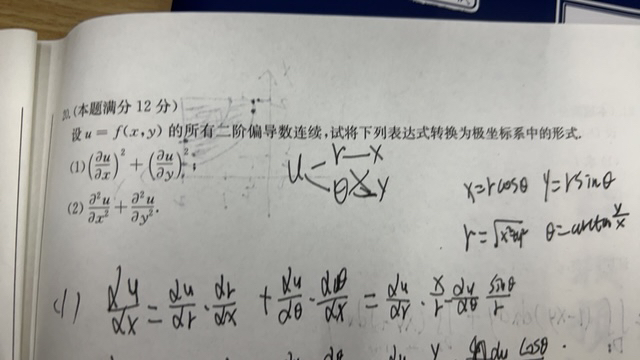 20.(本题满分 12 分)
设 u = f(x,y) 的所有二阶偏导数连续,试将下列表达式转换为极坐标系中的形式.
(1) (∂u/∂x)² + (∂u/∂y)²;
(2) ∂²u/∂x² + ∂²u/∂y².
u r x
θ y
x=rcosθ y=rsinθ
r=√x²+y² θ=arctan y/x
(1) ∂u/∂x = ∂u/∂r · ∂r/∂x + ∂u/∂θ · ∂θ/∂x = ∂u/∂r · x/r - ∂u/∂θ sinθ/r